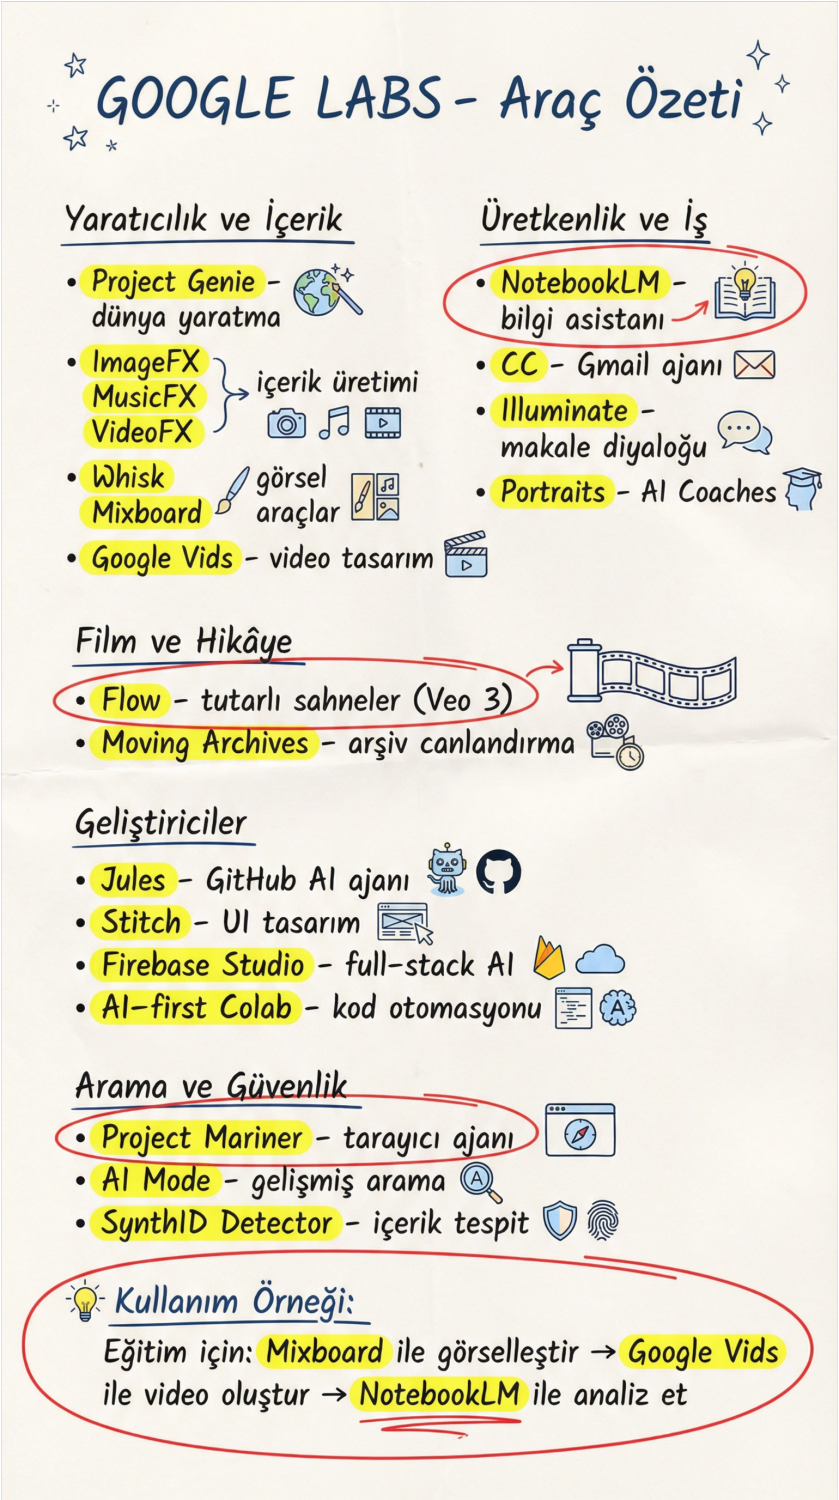 GOOGLE LABS - Araç Özeti
Yaratıcılık ve İçerik
• Project Genie -
dünya yaratma
• ImageFX
MusicFX
VideoFX
içerik üretimi
• Whisk
Mixboard
görsel
araçlar
• Google Vids - video tasarım
Üretkenlik ve İş
• NotebookLM -
bilgi asistanı
• CC - Gmail ajanı
• Illuminate -
makale diyaloğu
• Portraits - AI Coaches
Film ve Hikâye
• Flow - tutarlı sahneler (Veo 3)
• Moving Archives - arşiv canlandırma
Geliştiriciler
• Jules - GitHub AI ajanı
• Stitch - UI tasarım
• Firebase Studio - full-stack AI
• AI-first Colab - kod otomasyonu
A
Arama ve Güvenlik
• Project Mariner - tarayıcı ajanı
• AI Mode - gelişmiş arama
A
• SynthID Detector - içerik tespit
Kullanım Örneği:
Eğitim için: Mixboard ile görselleştir → Google Vids
ile video oluştur → NotebookLM ile analiz et